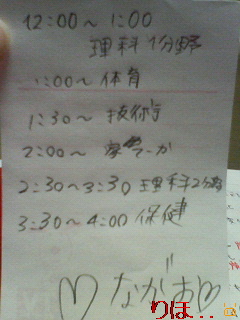 12:00〜1:00
理科1分野
1:00〜体育
1:30〜技術
2:00〜家てーか
2:30〜3:30 理科2分野
3:30〜4:00 保健
♡ながお♡
りほ…